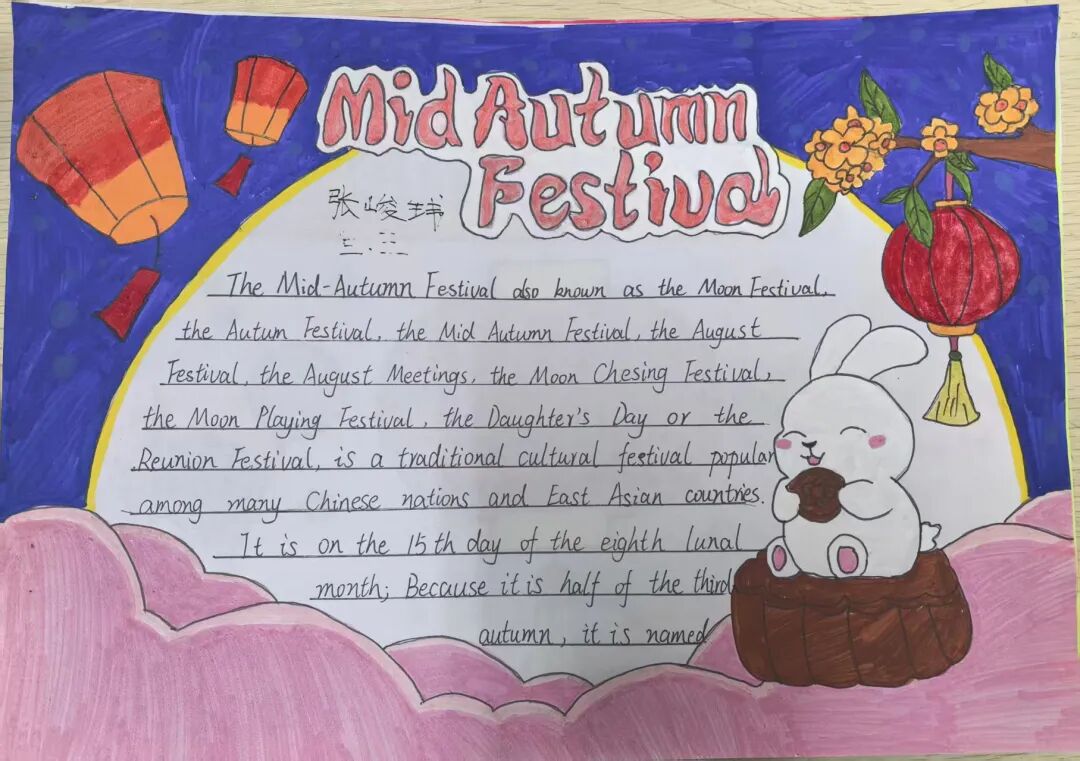 Mid Autumn
Festival
张峻玮
三.三
The Mid-Autumn Festival also known as the Moon Festival,
the Autum Festival, the Mid Autumn Festival, the August
Festival, the August Meetings, the Moon Chesing Festival,
the Moon Playing Festival, the Daughter's Day or the
Reunion Festival, is a traditional cultural festival popular
among many Chinese nations and East Asian countries.
It is on the 15th day of the eighth lunal
month; Because it is half of the third
autumn, it is named